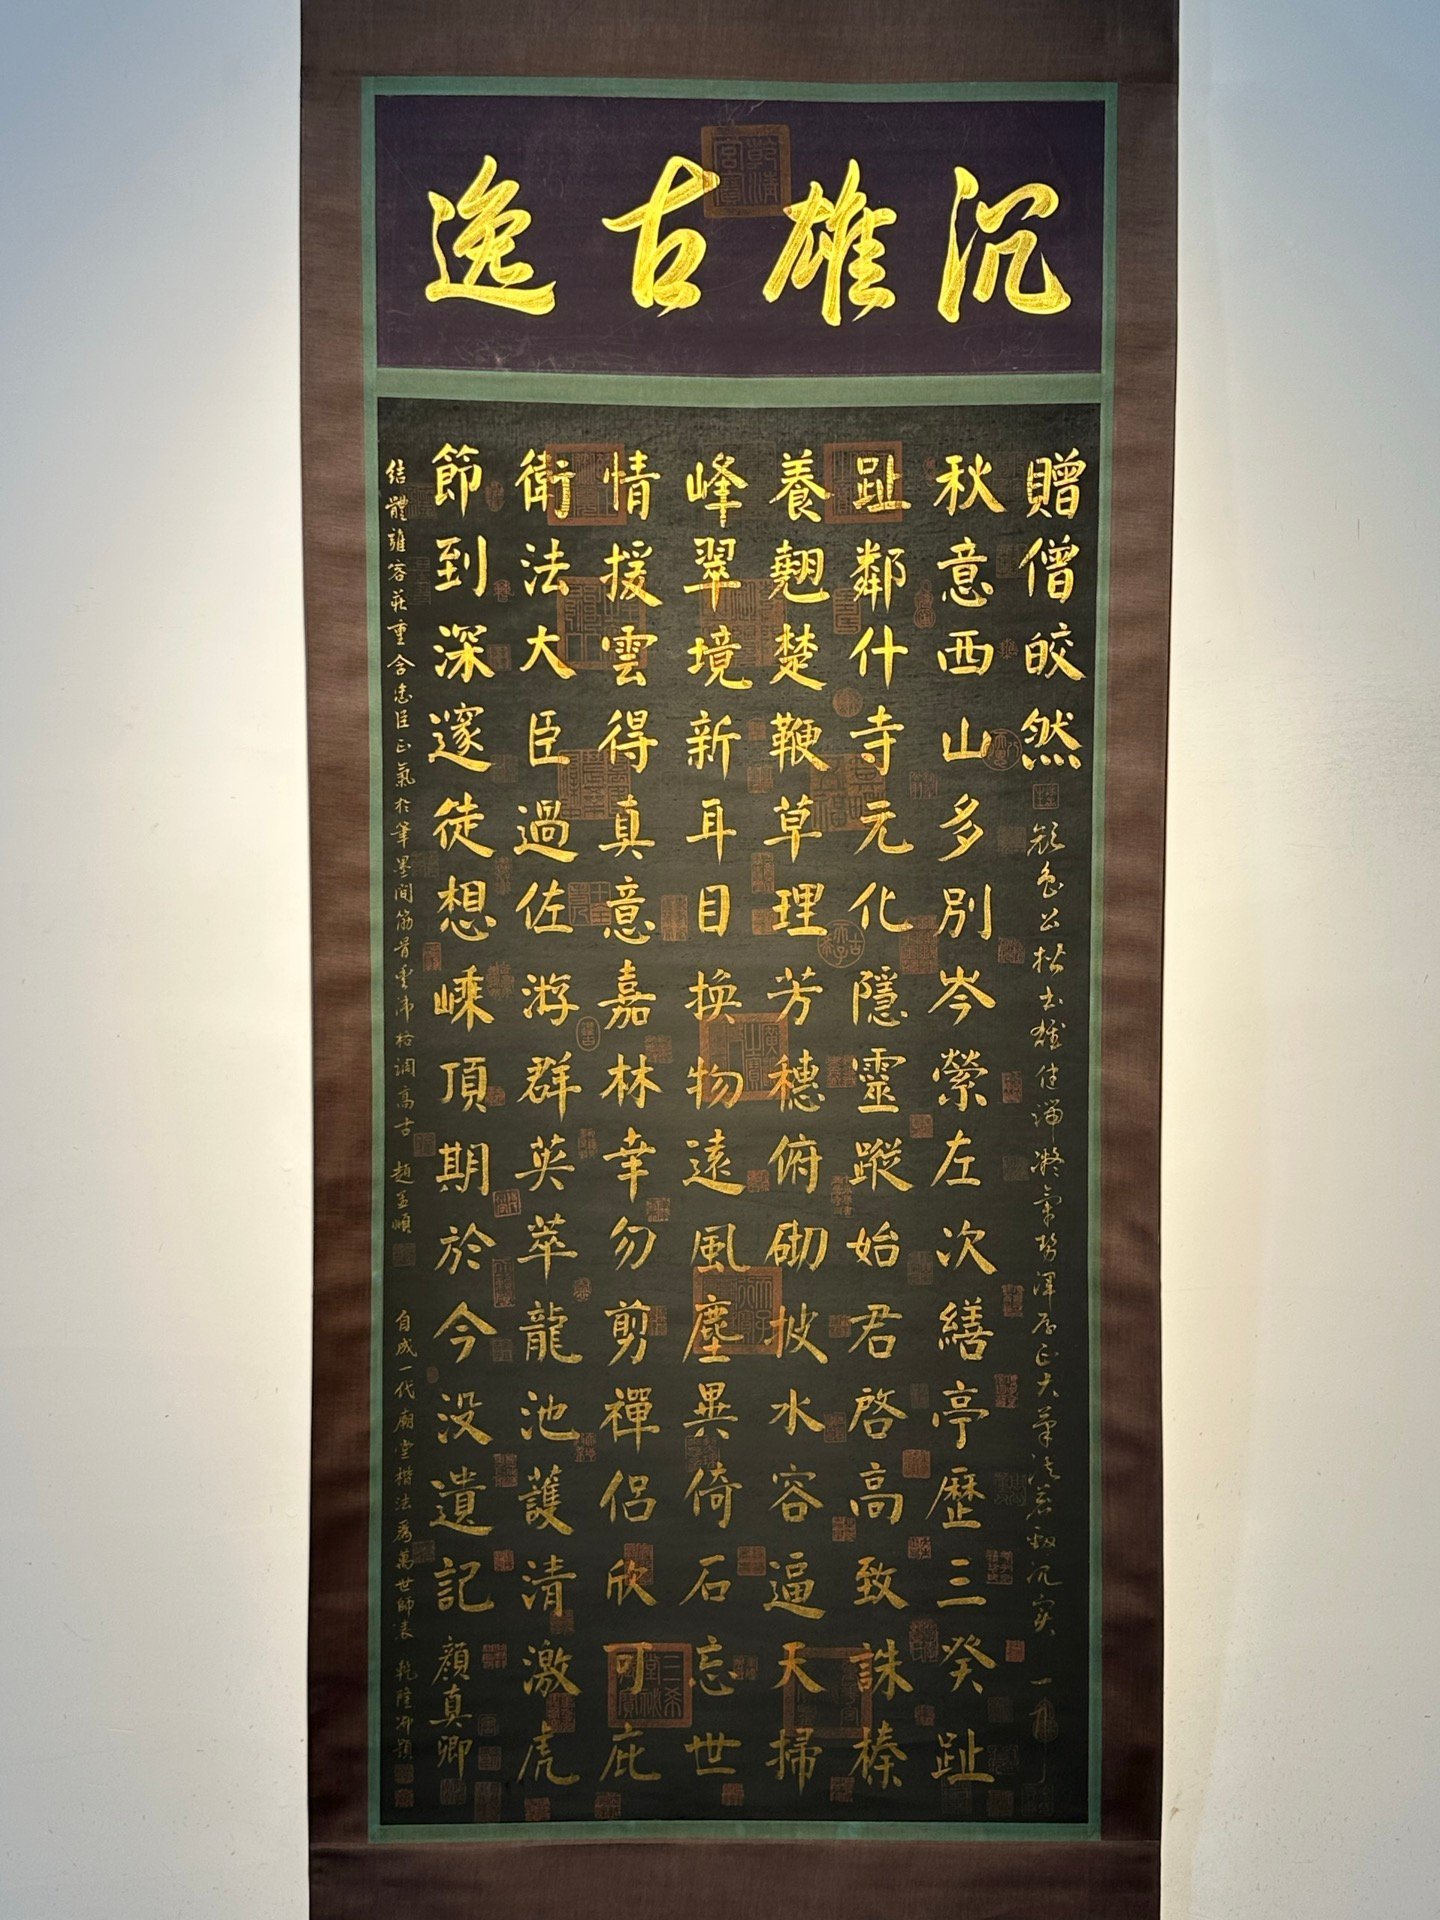 沉雄古逸
贈僧皎然
顏魯公楷書雄健端凝氣勢渾厚正大筆法蒼勁沉實
秋意西山多別岑縈左次繕亭歷三癸趾
趾鄰什寺元化隱靈蹤始君啓高致誅榛
養翹楚鞭草理芳穗俯砌披水容逼天掃
峰翠境新耳目換物遠風塵異倚石忘世
情援雲得真意嘉林幸勿剪禪侶欣可庇
衛法大臣過佐游群英萃龍池護清激虎
節到深邃徒想嵊頂期於今没遺記顏真卿
結體雍容莊重含忠臣正氣於筆墨間筋骨豐沛格調高古 趙孟頫
自成一代廟堂楷法為萬世師表 乾隆御題